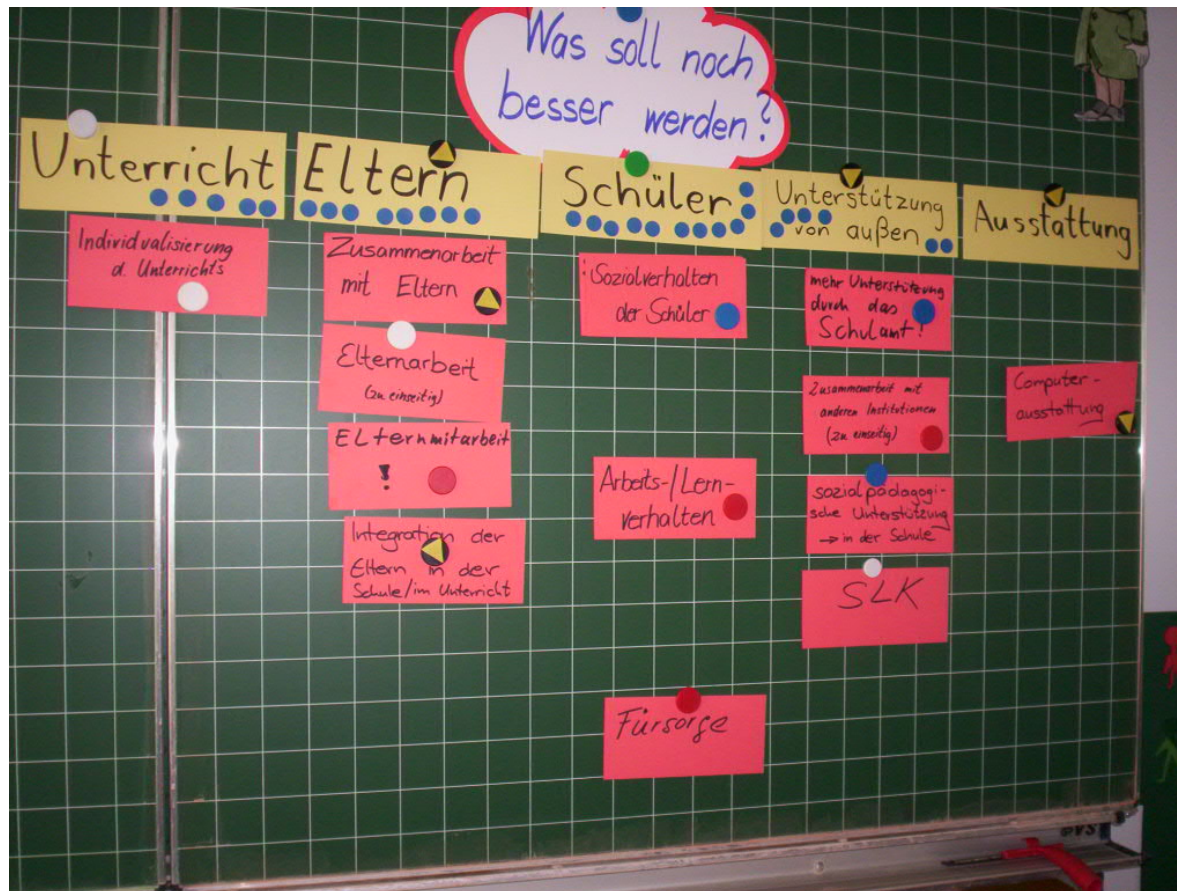 Was soll noch
besser werden?
Unterricht
Individualisierung
d. Unterrichts
Eltern
Zusammenarbeit
mit Eltern
Elternarbeit
(zu einseitig)
ELternmitarbeit
!
Integration der
Eltern in der
Schule/im Unterricht
Schüler
Sozialverhalten
der Schüler
Arbeits-/Lern-
verhalten
Fürsorge
Unterstützung
von außen
mehr Unterstützung
durch das
Schulamt!
Zusammenarbeit mit
anderen Institutionen
(zu einseitig)
sozialpädagogi-
sche Unterstützung
→ in der Schule
SLK
Ausstattung
Computer-
ausstattung